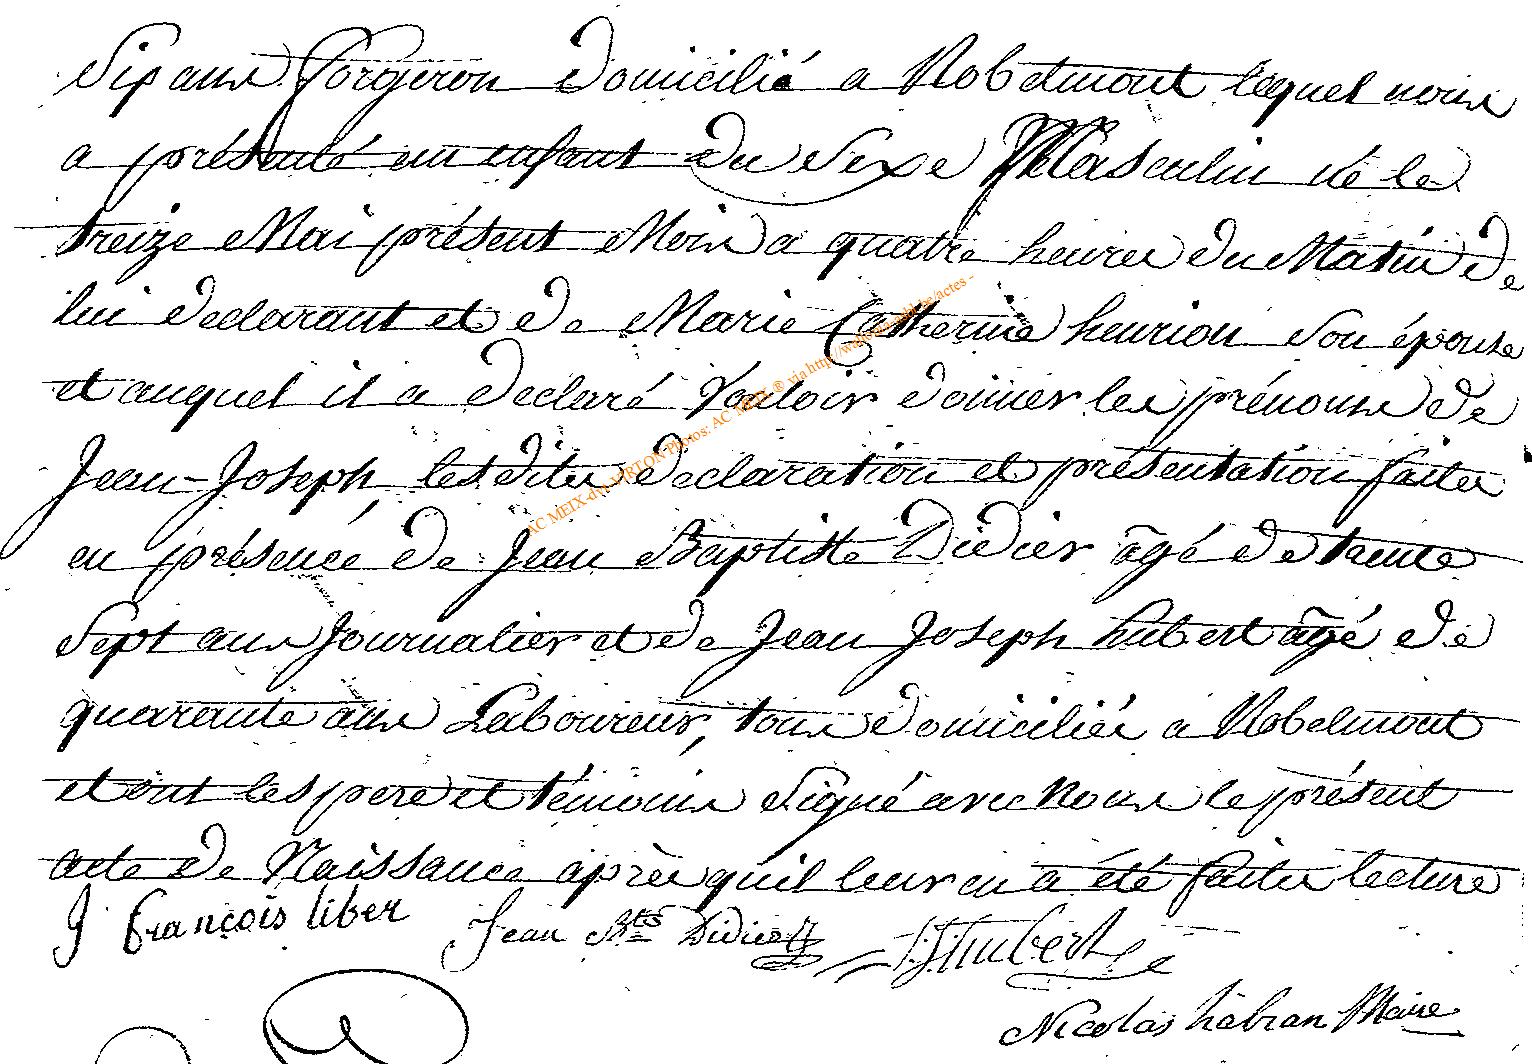 Six ans forgeron domicilié a Robelmont lequel nous
a présenté un enfant du Sexe Masculin né le
treize Mai présent Mois a quatre heures du Matin de
lui declarant et de Marie Catherine henrion Son épouse
et auquel il a declaré Vouloir donner les prénoms de
Jean-Joseph, lesdites declaration et présentation faites
en présence de Jean Baptiste Didier âgé de trente
Sept ans Journalier et de Jean Joseph hubert âgé de
quarante ans Laboureur, tous domiciliés a Robelmont
et ont les pere et témoins Signé avec Nous le présent
acte de Naissance après quil leur en a été faites lecture
J françois liber Jean Bte Didier J:J Hubert
Nicolas habran Maire
AC MEIX-dvt-VIRTON Photos: AC MEIX ® via